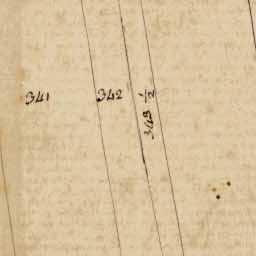 341
342
343 1/2